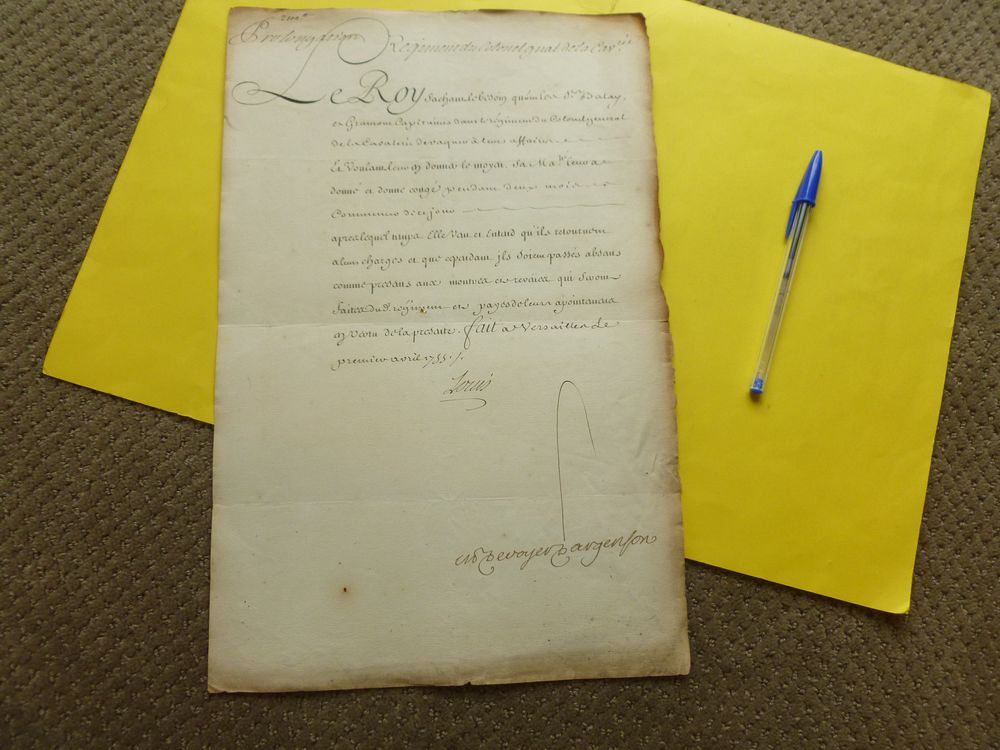 2me
Prolongation Regiment du Colonel gnal de la Cavie
Le Roy sachant le besoin qu'ont les Srs Balay,
et Gramont Capitaines dans le régiment du Colonel general
de la Cavalerie de vaquer à leurs affaires
Et Voulant leur en donner le moyen. Sa Maté leur a
donné et donne congé pendant deux mois
Commencer de ce jour
apres lequel temps Elle Veut et Entend qu'ils retournent
a leurs charges et que cependant jls soient passés absans
comme presans aux montres et revües qui seront
faites dud. régiment et payés de leurs apointemens
en vertu de la presente. fait a Versailles le
premier avril 1755./.
Louis
M De voyer D'argenson